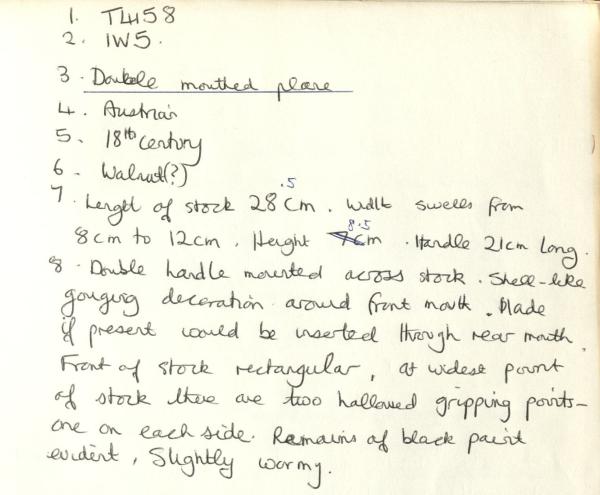 1. TL1158
2. IW5.
3. Double mouthed plane
4. Austrian
5. 18th Century
6. Walnut(?)
7. Length of stock 28.5 cm. Width swells from
8cm to 12cm. Height 8.5 cm. Handle 21cm long.
8. Double handle mounted across stock. Shell-like
gouging decoration around front mouth. Blade
if present would be inserted through rear mouth.
Front of stock rectangular, at widest point
of stock there are two hallowed gripping points-
one on each side. Remains of black paint
evident, Slightly wormy.